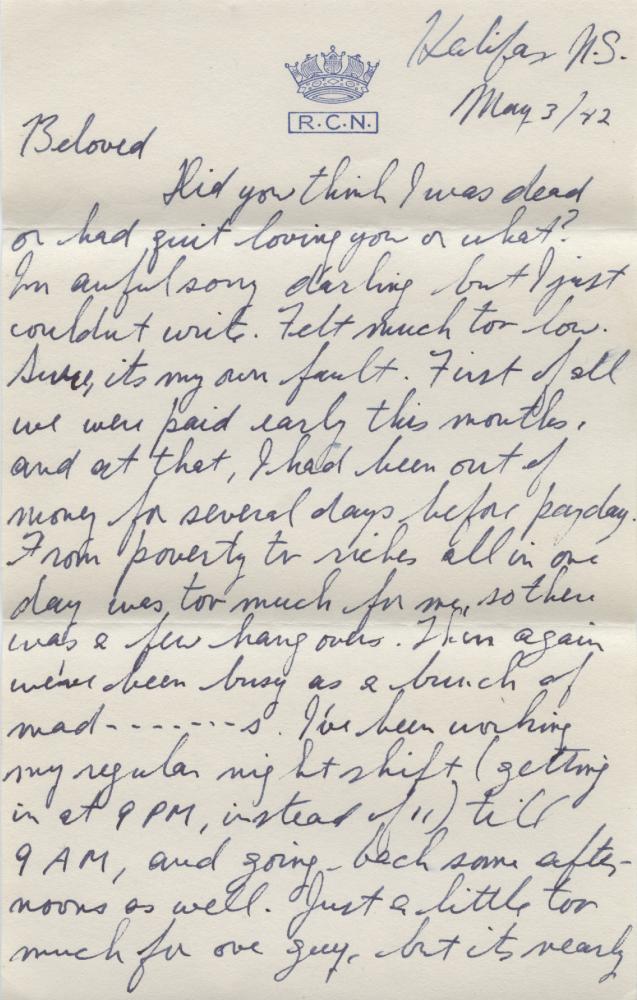 Halifax N.S.
R.C.N.
May 3/42
Beloved
Did you think I was dead
or had quit loving you or what?
Im awful sorry darling but I just
couldnt write. Felt much too low.
Sure, its my own fault. First of all
we were paid early this months,
and at that, I had been out of
money for several days before payday.
From poverty to riches all in one
day was too much for me, so there
was a few hang overs. Then again
we've been busy as a bunch of
mad-------s. I've been working
my regular night shift (getting
in at 9 PM, instead of 11) till
9 AM, and going back some after-
noons as well. Just a little too
much for one guy, but its nearly